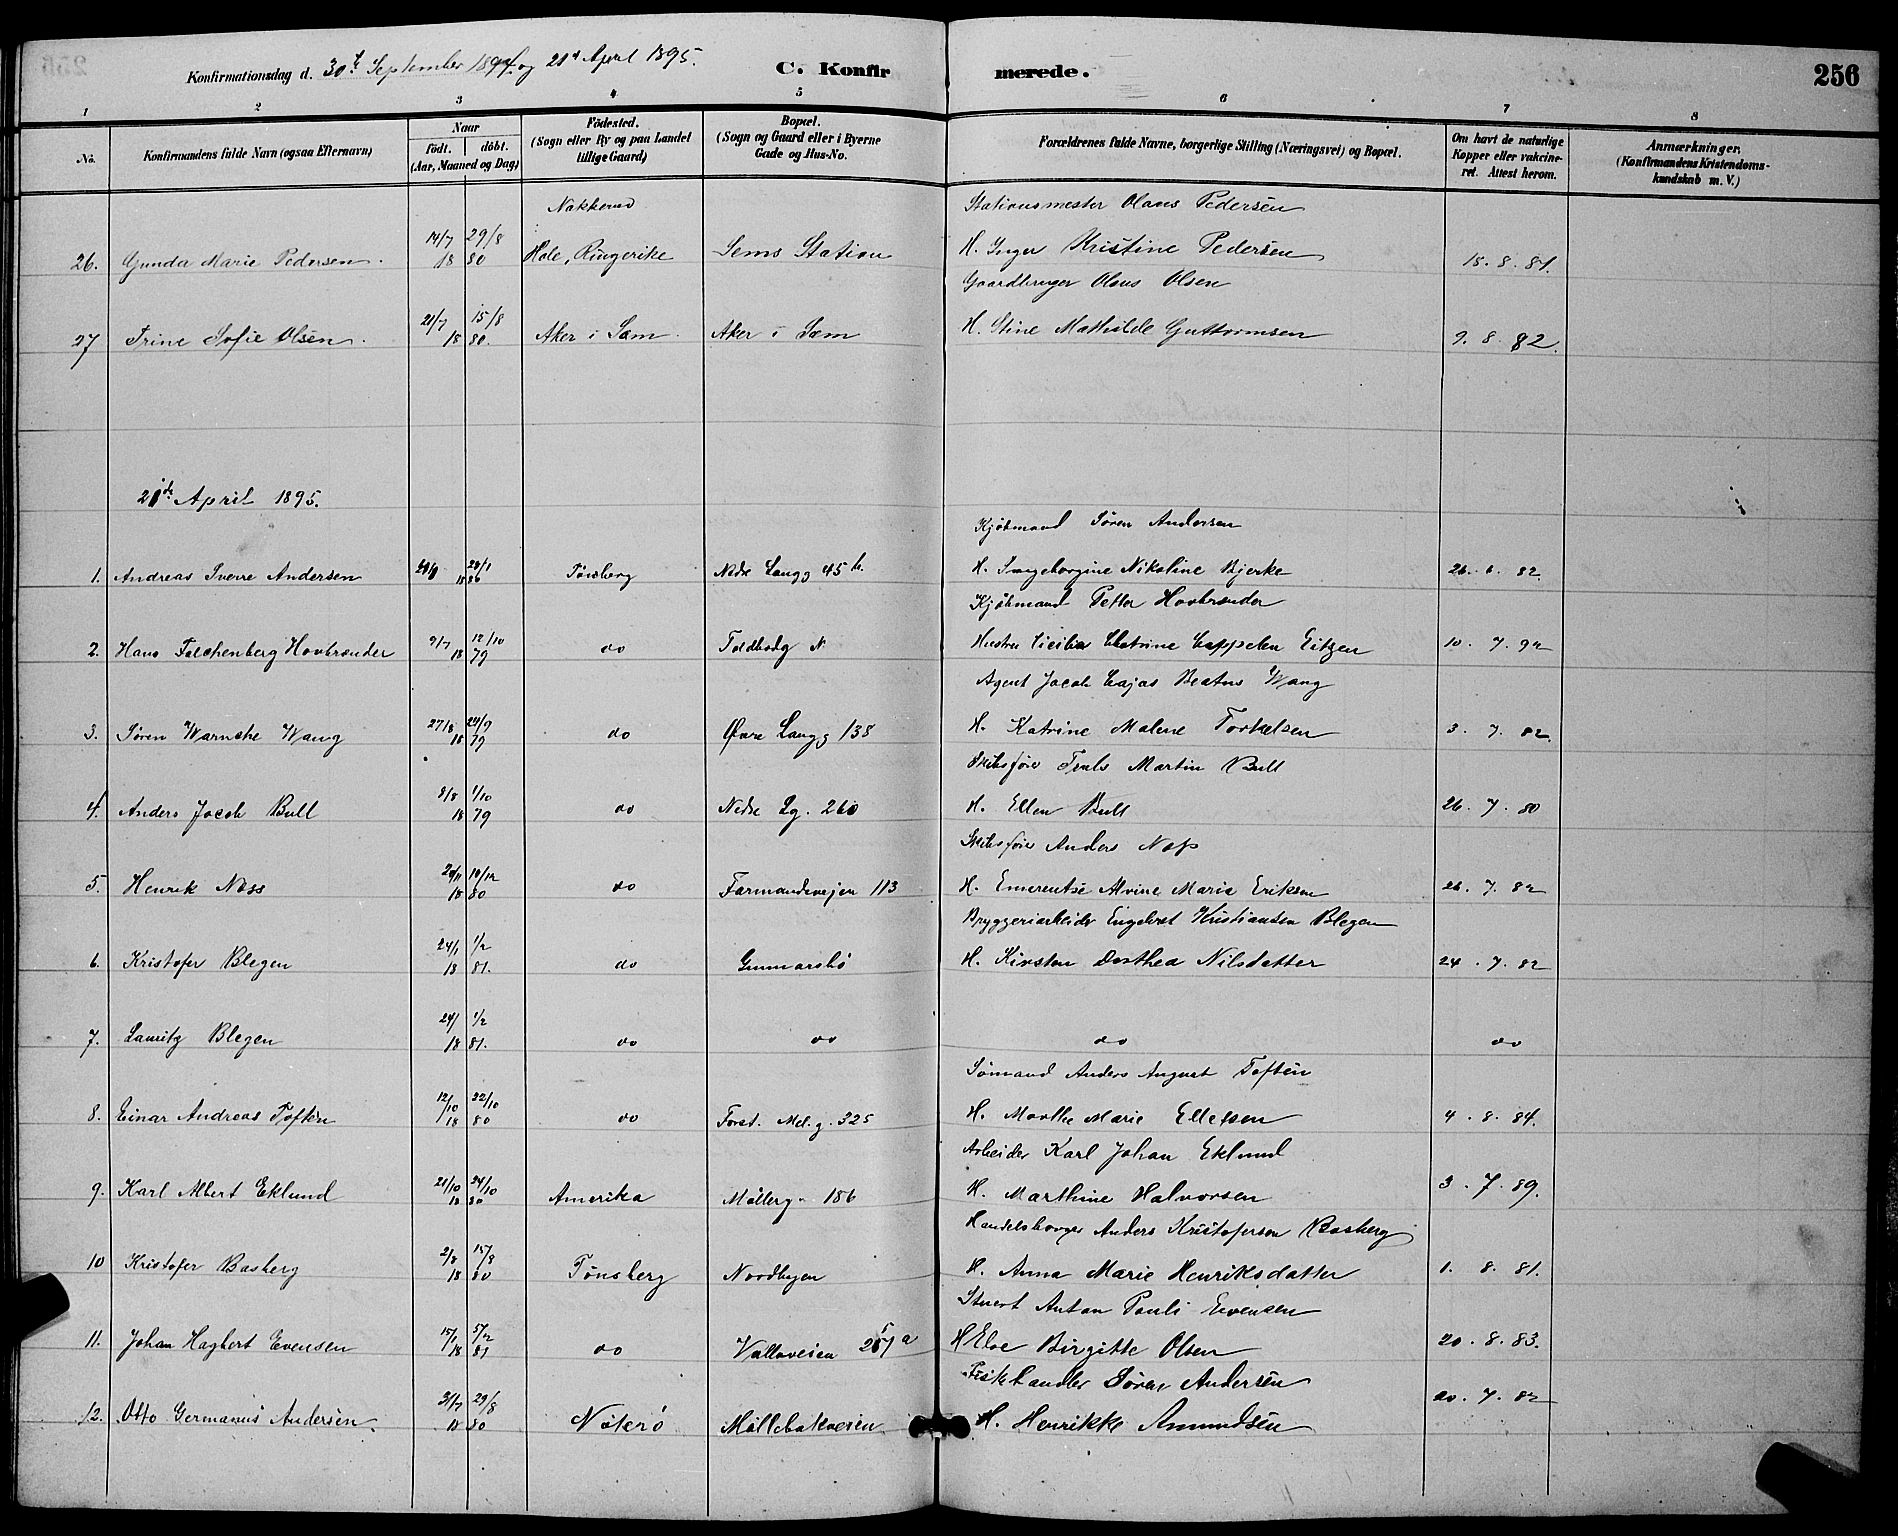 Konfirmationsdag d. 30te September 1894 og 21d April 1895. C. Konfirmerede. 256
1 2 3 4 5 6 7 8
No. Konfirmandens fulde Navn (ogsaa Efternavn) Naar födt. döbt. (Aar, Maaned og Dag) Födested. (Sogn eller By og paa Landet tillige Gaard) Bopæl. (Sogn og Gaard eller i Byerne Gade og Hus-No. Forældrenes fulde Navne, borgerlige Stilling (Næringsvei) og Bopæl. Om havt de naturlige Kopper eller vakcineret. Attest herom. Anmærkninger. (Konfirmandens Kristendomskundskab m. V.)
Nakkerud Stationsmester Olaus Pedersen
26. Gunda Marie Pedersen. 14/7 29/8 18 80 Hole, Ringerike Sems Station H. Inger Kristine Pedersen 15. 8. 81.
Gaardbruger Olaus Olsen
27 Trine Sofie Olsen. 21/7 15/8 18 80. Aker i Sem Aker i Sem H. Stine Mathilde Guttormsen 9. 8. 82.
21de April 1895.
Kjöbmand Sören Andersen
1. Andreas Sverre Andersen 18 Tönsberg Nedre Langg 45 b. H. Ingeborgine Nikoline Bjerke 26. 6. 82.
Kjöbmand Petter Hovbrender
2. Hans Falchenberg Hovbrender 9/7 12/10 18 79 do Toldbodg N H. Cecilia Catrine Cappelen Eitzen 10. 7. 92
Agent Jacob Cajas Beatus Wang
3. Sören Warncke Wang 27/8 29/9 18 79 do Øvre Langg 138 H. Katrine Malene Torkelsen 3. 7. 82.
Skibsförer Truls Martin Bull
4. Anders Jacob Bull 8/8 1/10 18 79 do Nedre Lg. 260 H. Ellen Bull 26. 7. 80
Skibsförer Anders Næss
5. Henrik Næss 18 80 do Farmandsvejen 113 H. Emerentse Alvine Marie Eriksen 26. 7. 82
Bryggeriarbeider Engebret Kristiansen Blegen
6. Kristofer Blegen 24/1 1/2 18 81. do Gunnarsbö H. Kirsten Dorthea Nilsdatter 24. 7. 82
7. Lauritz Blegen 24/1 1/2 18 81. do do do do
Sömand Anders August Toften
8. Einar Andreas Toften 12/10 22/10 18 80 do Forst. Mel. g. 325 H. Marthe Marie Ellefsen 4. 8. 84.
Arbeider Karl Johan Eklund
9. Karl Albert Eklund 21/10 24/10 18 80 Amerika Möllerg. 186 H. Marthine Halvorsen 3. 7. 89.
Handelsborger Anders Kristofersen Basberg
10 Kristofer Basberg 2/8 15/8 18 80 Tönsberg Nordbyen H. Anna Marie Henriksdatter 1. 8. 81.
Stuert Anton Pauli Evensen
11. Johan Hagbert Evensen 15/1 5/2 18 81 do Valloveien 257 a H. Else Birgitte Olsen 20. 8. 83.
Fiskhandler Sören Andersen
12. Otto Germanus Andersen. 31/7 29/8 18 80 Nöterö Möllebakveien H. Henrikke Amundsen 20. 7. 82